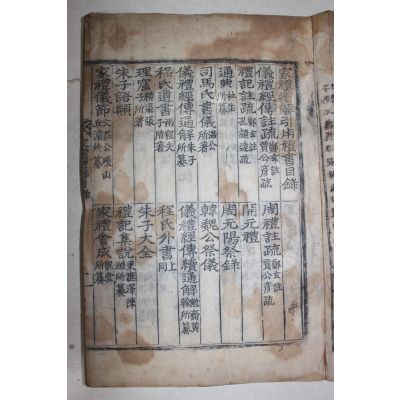 家禮增解引用禮書目錄
儀禮經傳註疏 鄭玄註 賈公彦疏 周禮註疏 鄭玄註 賈公彦疏
禮記註疏 鄭玄註 孔穎達疏 開元禮
通典 杜佑所纂 周元陽祭錄
司馬氏書儀 溫公所著 韓魏公祭儀
儀禮經傳通解 朱子所纂 儀禮經傳續通解 勉齋黃榦所纂
程氏遺書 兩程夫子所著 程氏外書 上同
理窟 橫渠張子所著 朱子大全
朱子語類 禮記集說 東匯澤陳澔所纂
家禮儀節 文莊公瓊山丘濬所纂 家禮會成 魏堂所纂